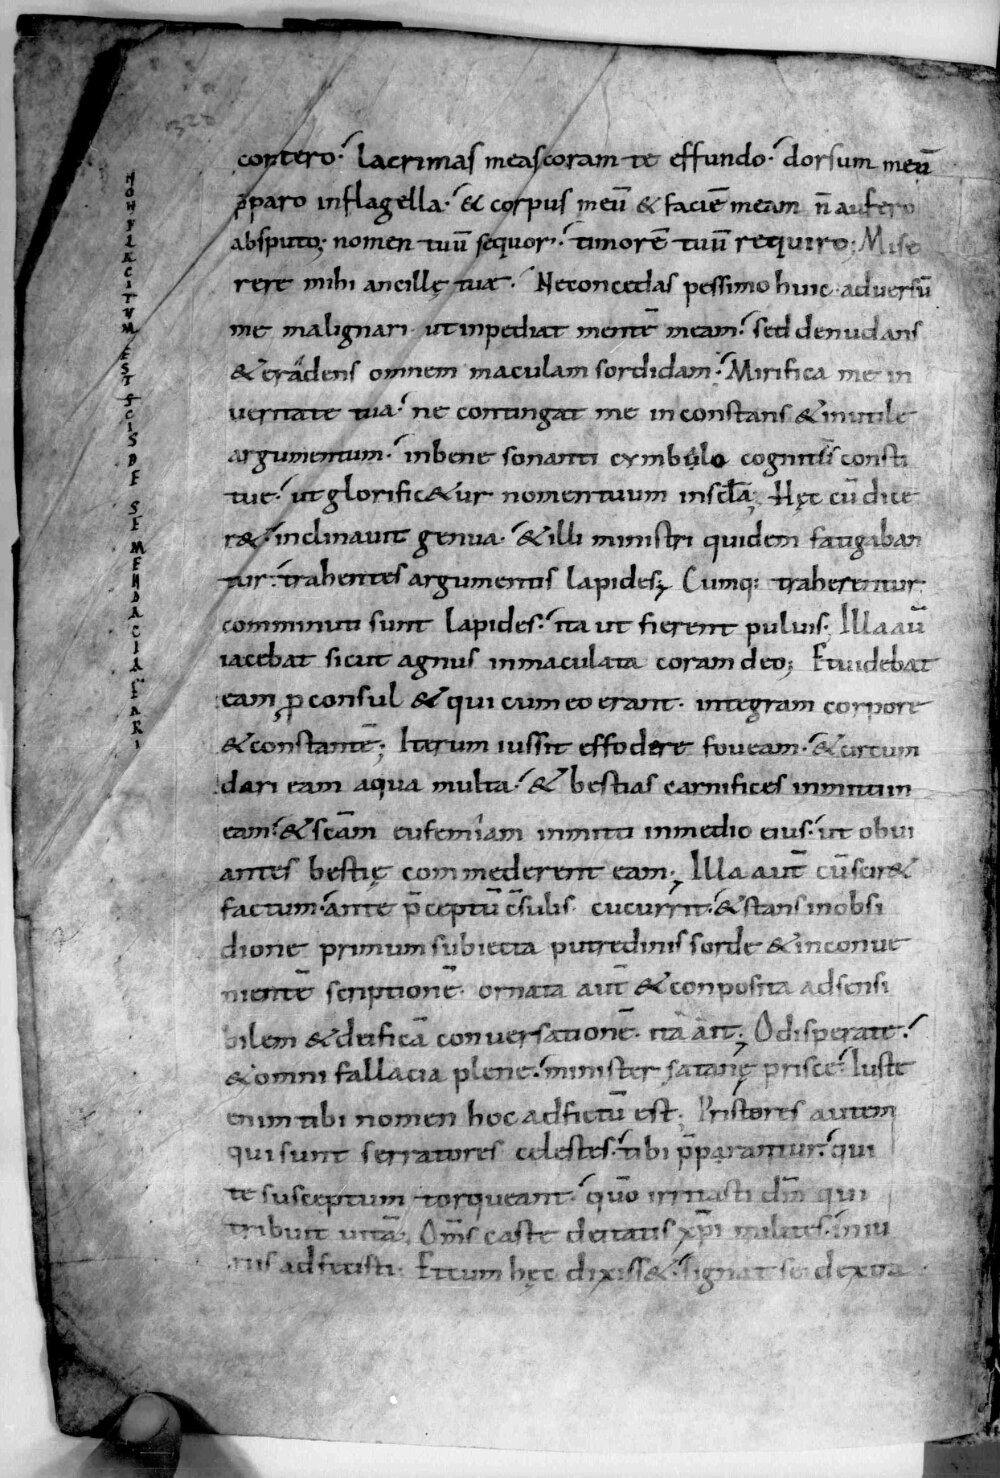 contero. lacrimas meas coram te effundo. dorsum meū
p̄paro in flagella. & corpus meū & faciē meam n̄ aufero
absputo; nomen tuū sequor. timorē tuū requiro; Mise
rere mihi ancillę tuæ. Ne concedas pessimo huic adversū
me malignari ut inpediat mentē meam. sed denudans
& eradens omnem maculam sordidam. Mirifica me in
veritate tua. ne contingat me in constans & inutile
argumentum. in bene sonanti cymbalo consti
tue. ut glorific&ur nomen tuum in sc̄la; Hęc cū dice
r& inclinavit genua. & illi ministri quidem fatigaban
tur. trahentes argumentis lapides; Cumq; traherentur
comminuti sunt lapides. ita ut fierent pulvis; Illa aū
iacebat sicut agnus inmaculata coram deo; Et videbat
eam p̱consul & qui cum eo erant. integram corpore
& constantē; Iterum iussit effodere foveam. & circum
dari eam aqua multa. & bestias carnifices inmitti in
eam. & sc̄am eufemiam inmitti in medio eius. ut obvi
antes bestię commederent eam; Illa aut̄ cū scir&
factum. ante p̄ceptū c̄sulis cucurrit. & stans in obsi
dione primum subiecta putredinis sorde & inconve
nientē scriptionē ornata aut̄ & conposita ad sensi
bilem & deificā conversationē. ita ait; O disperate.
& omni fallacia plene. minister satanę prisce. Iuste
enim tibi nomen hoc adfictū est; Pristores autem
qui sunt serratores celestes. tibi p̄parantur. qui
te susceptum torqueant. quō irritasti dn̄m qui
tribuit vitā; Om̄s caste deitatis xp̄i milites. iniu
riis adfecisti; Et cum hęc dixiss&. signat se dextra
NON PLACITUM EST SCIS DE SE MENDACIA FARI